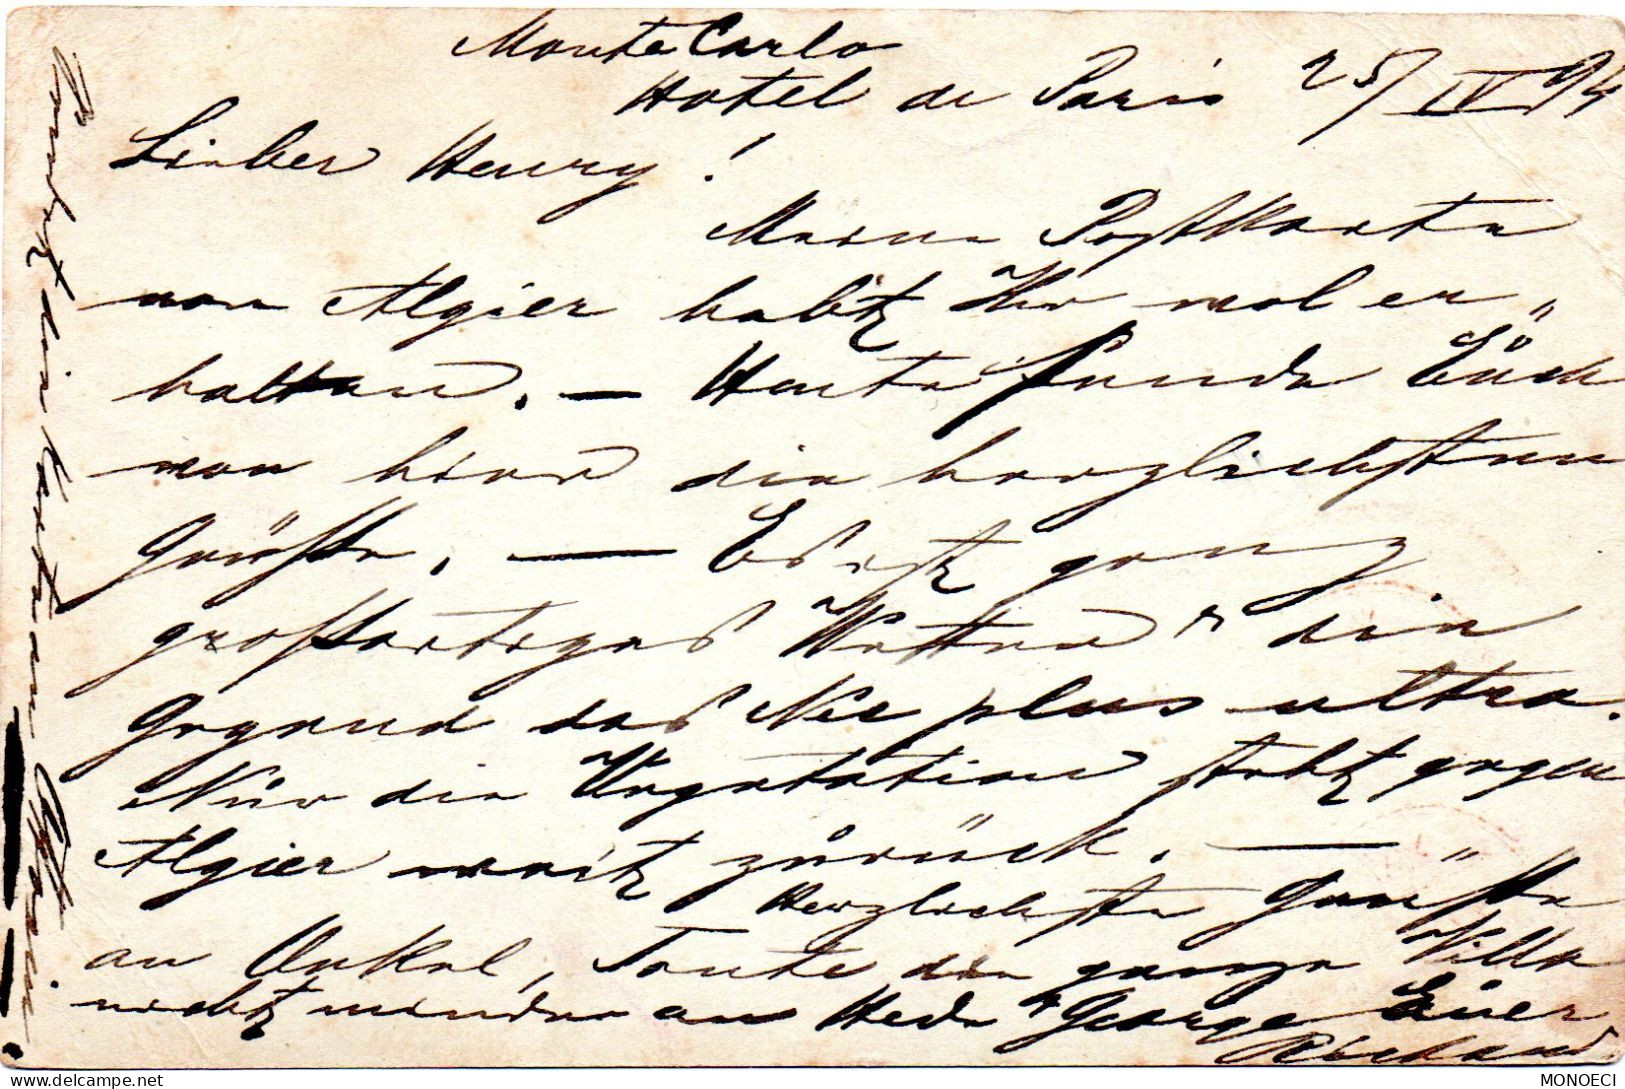 Monte Carlo
Hotel de Paris 25/IV 94
Lieber Henry!
Meine Postkarte
von Algier habt Ihr wol er„
halten. — Heute sende Euch
von hier die herzlichsten
Grüße. — Es ist ganz
großartiges Wetter & die
Gegend das Nec plus ultra.
Nur die Vegetation steht gegen
Algier weit zurück. —
Herzlichste Grüße
an Onkel, Tante die ganze Villa
nicht minder an Hede & George Euer
Richard
delcampe.net
MONOECI